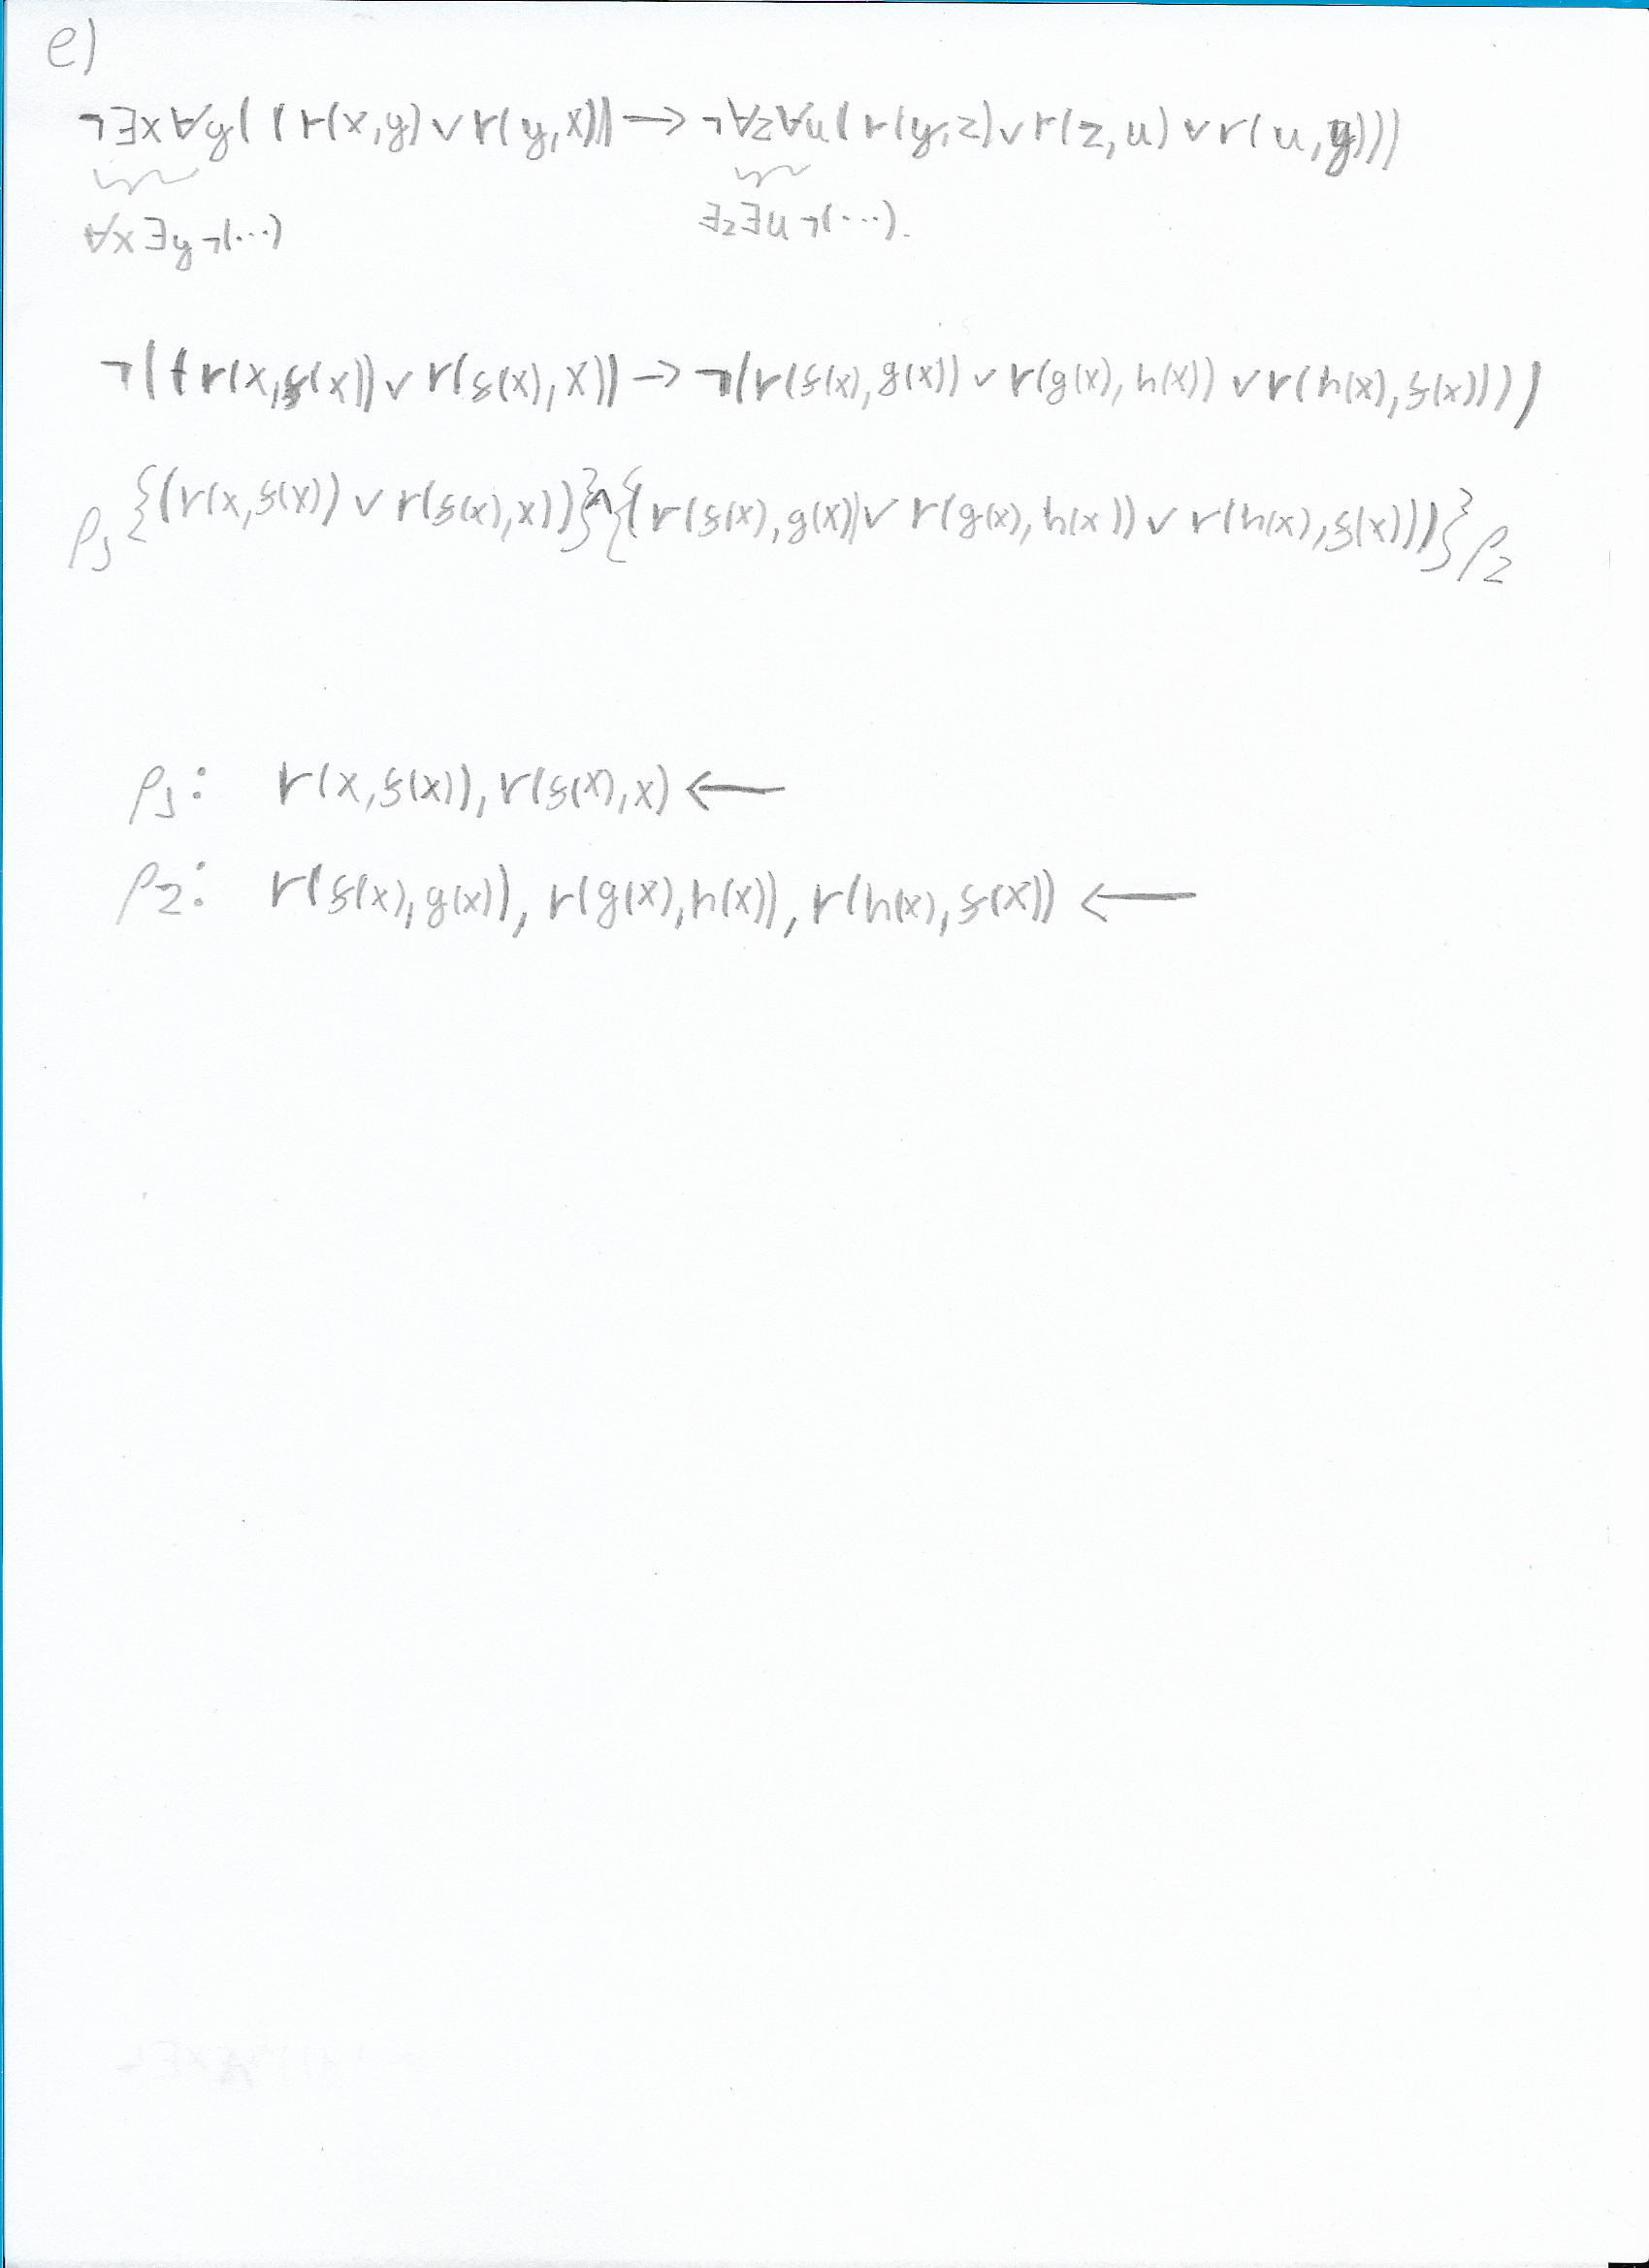 e)
¬∃x∀y((r(x,y)∨r(y,x))→¬∀z∀u(r(y,z)∨r(z,u)∨r(u,y)))
∀x∃y¬(...) ∃z∃u¬(...).
¬((r(x,f(x))∨r(f(x),x))→¬(r(f(x),g(x))∨r(g(x),h(x))∨r(h(x),f(x))))
ρ1{(r(x,f(x))∨r(f(x),x))}∧{(r(f(x),g(x))∨r(g(x),h(x))∨r(h(x),f(x)))}ρ2
ρ1: r(x,f(x)),r(f(x),x)←
ρ2: r(f(x),g(x)),r(g(x),h(x)),r(h(x),f(x))←